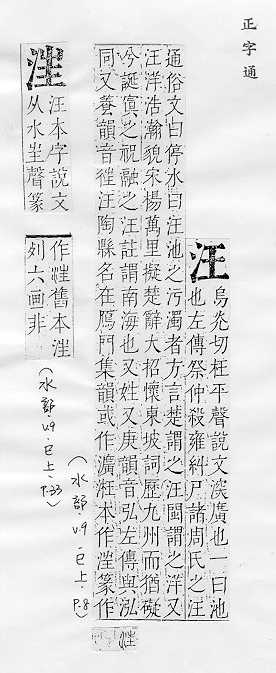 正字通
汪
烏光切枉平聲說文深廣也一曰池
也左傳祭仲殺雍糾尸諸周氏之汪
通俗文曰停水曰汪池之污濁者方言楚謂之汪閩謂之洋又
汪洋浩瀚貌宋楊萬里擬楚辭大招懷東坡詞歷九州而猶礙
兮誕寘之祝融之汪註謂南海也又姓又庚韻音弘左傳與泓
同又養韻音徃汪陶縣名在鴈門集韻或作本作篆作
(水部.v9.巳上.P.8)
汪本字說文
从水㞷聲篆
作舊本
列六画非
(水部.v9.巳上.P.33)